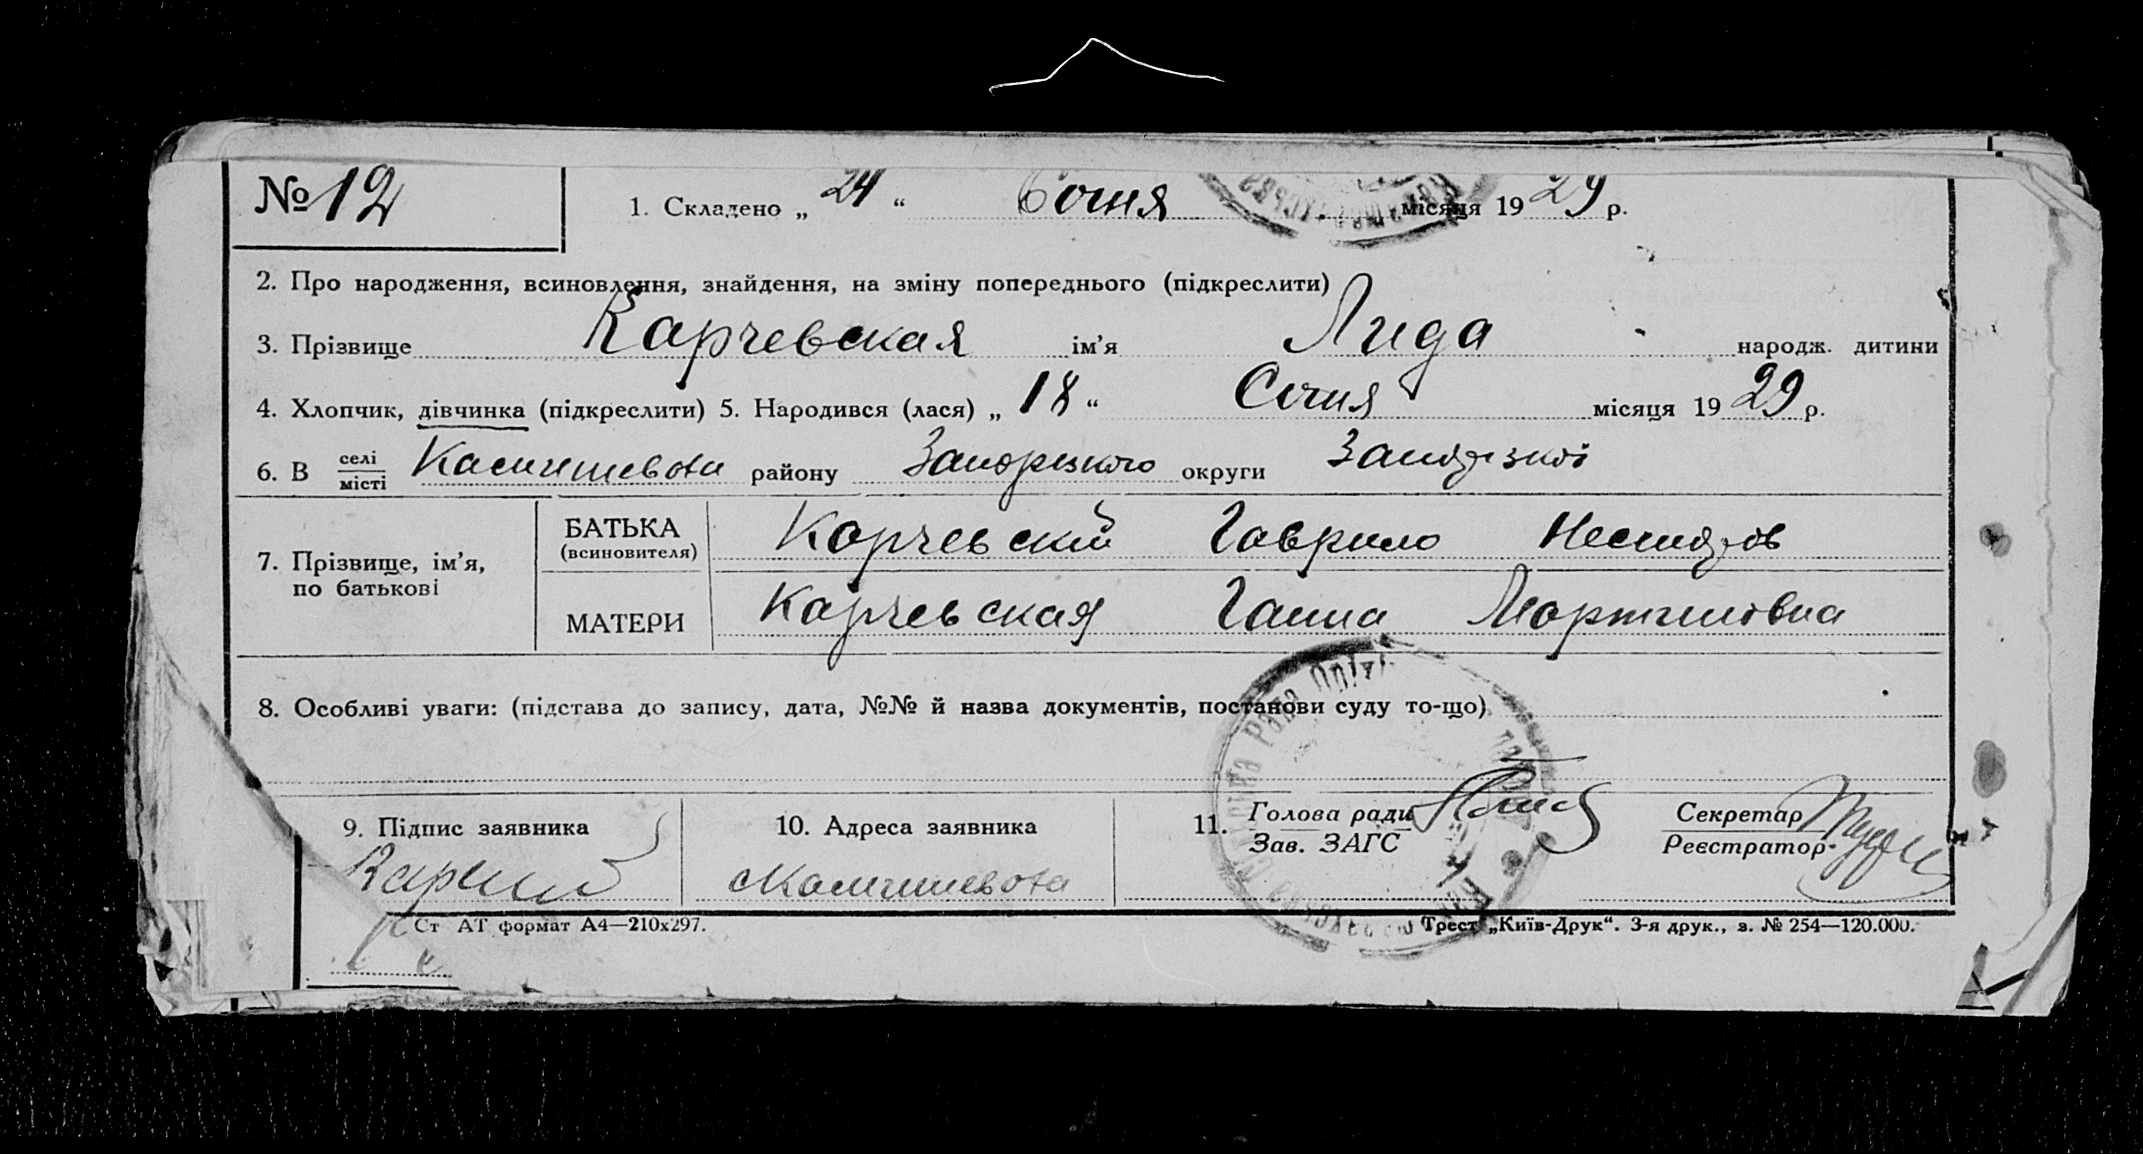 № 12
1. Складено „ 24 “ Сочня місяця 1929 р.
2. Про народження, всиновлення, знайдення, на зміну попереднього (підкреслити)
3. Прізвище Карчевская ім’я Лида народж. дитини
4. Хлопчик, дівчинка (підкреслити) 5. Народився (лася) „ 18 “ Сочня місяця 1929 р.
6. В селі місті району округи
7. Прізвище, ім’я, по батькові
БАТЬКА (всиновителя) Корчевский Гаврило
МАТЕРИ Карчевская Ганна Мортиновна
8. Особливі уваги: (підстава до запису, дата, №№ й назва документів, постанови суду то-що)
9. Підпис заявника
10. Адреса заявника
11. Голова ради Зав. ЗАГС
Секретар Реєстратор
Ст АТ формат А4—210х297.
Трест „Київ-Друк“. 3-я друк., з. № 254—120.000.